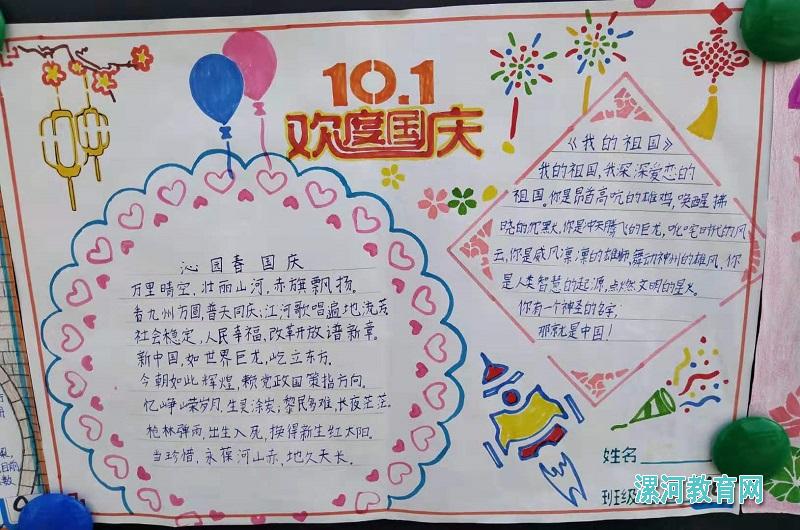 10.1
欢度国庆
《我的祖国》
我的祖国,我深深爱恋的
祖国。你是昂首高吭的雄鸡,唤醒拂
晓的沉默,你是冲天腾飞的巨龙,叱咤时代的风
云,你是威风凛凛的雄狮,舞动神州的雄风,你
是人类智慧的起源,点燃文明的星火。
你有一个神圣的名字,
那就是中国!
沁园春国庆
万里晴空,壮丽山河,赤旗飘扬。
看九州方圆,普天同庆;江河歌唱,遍地流芳
社会稳定,人民幸福,改革开放谱新章。
新中国,如世界巨龙,屹立东方。
今朝如此辉煌,赖党政国策指方向。
忆峥嵘岁月,生灵涂炭;黎民多难,长夜茫茫。
枪林弹雨,出生入死,换得新生红太阳。
当珍惜,永葆河山赤,地久天长。
姓名
班级
漯河教育网